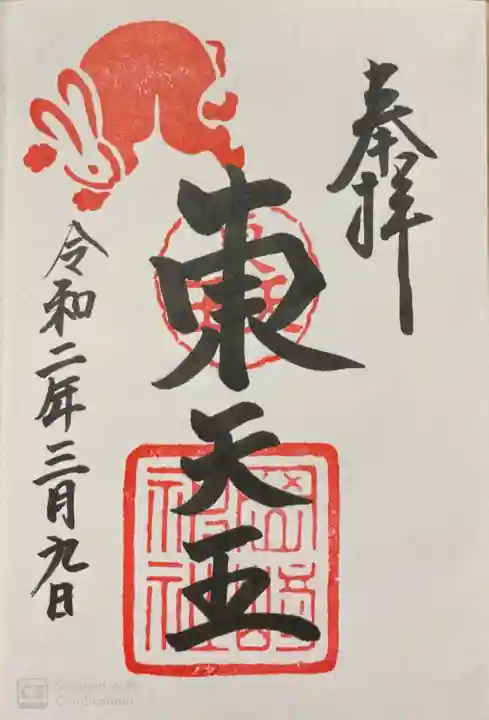 奉拝
東天王
岡崎神社
令和二年三月九日
CS Scanned with
CamScanner